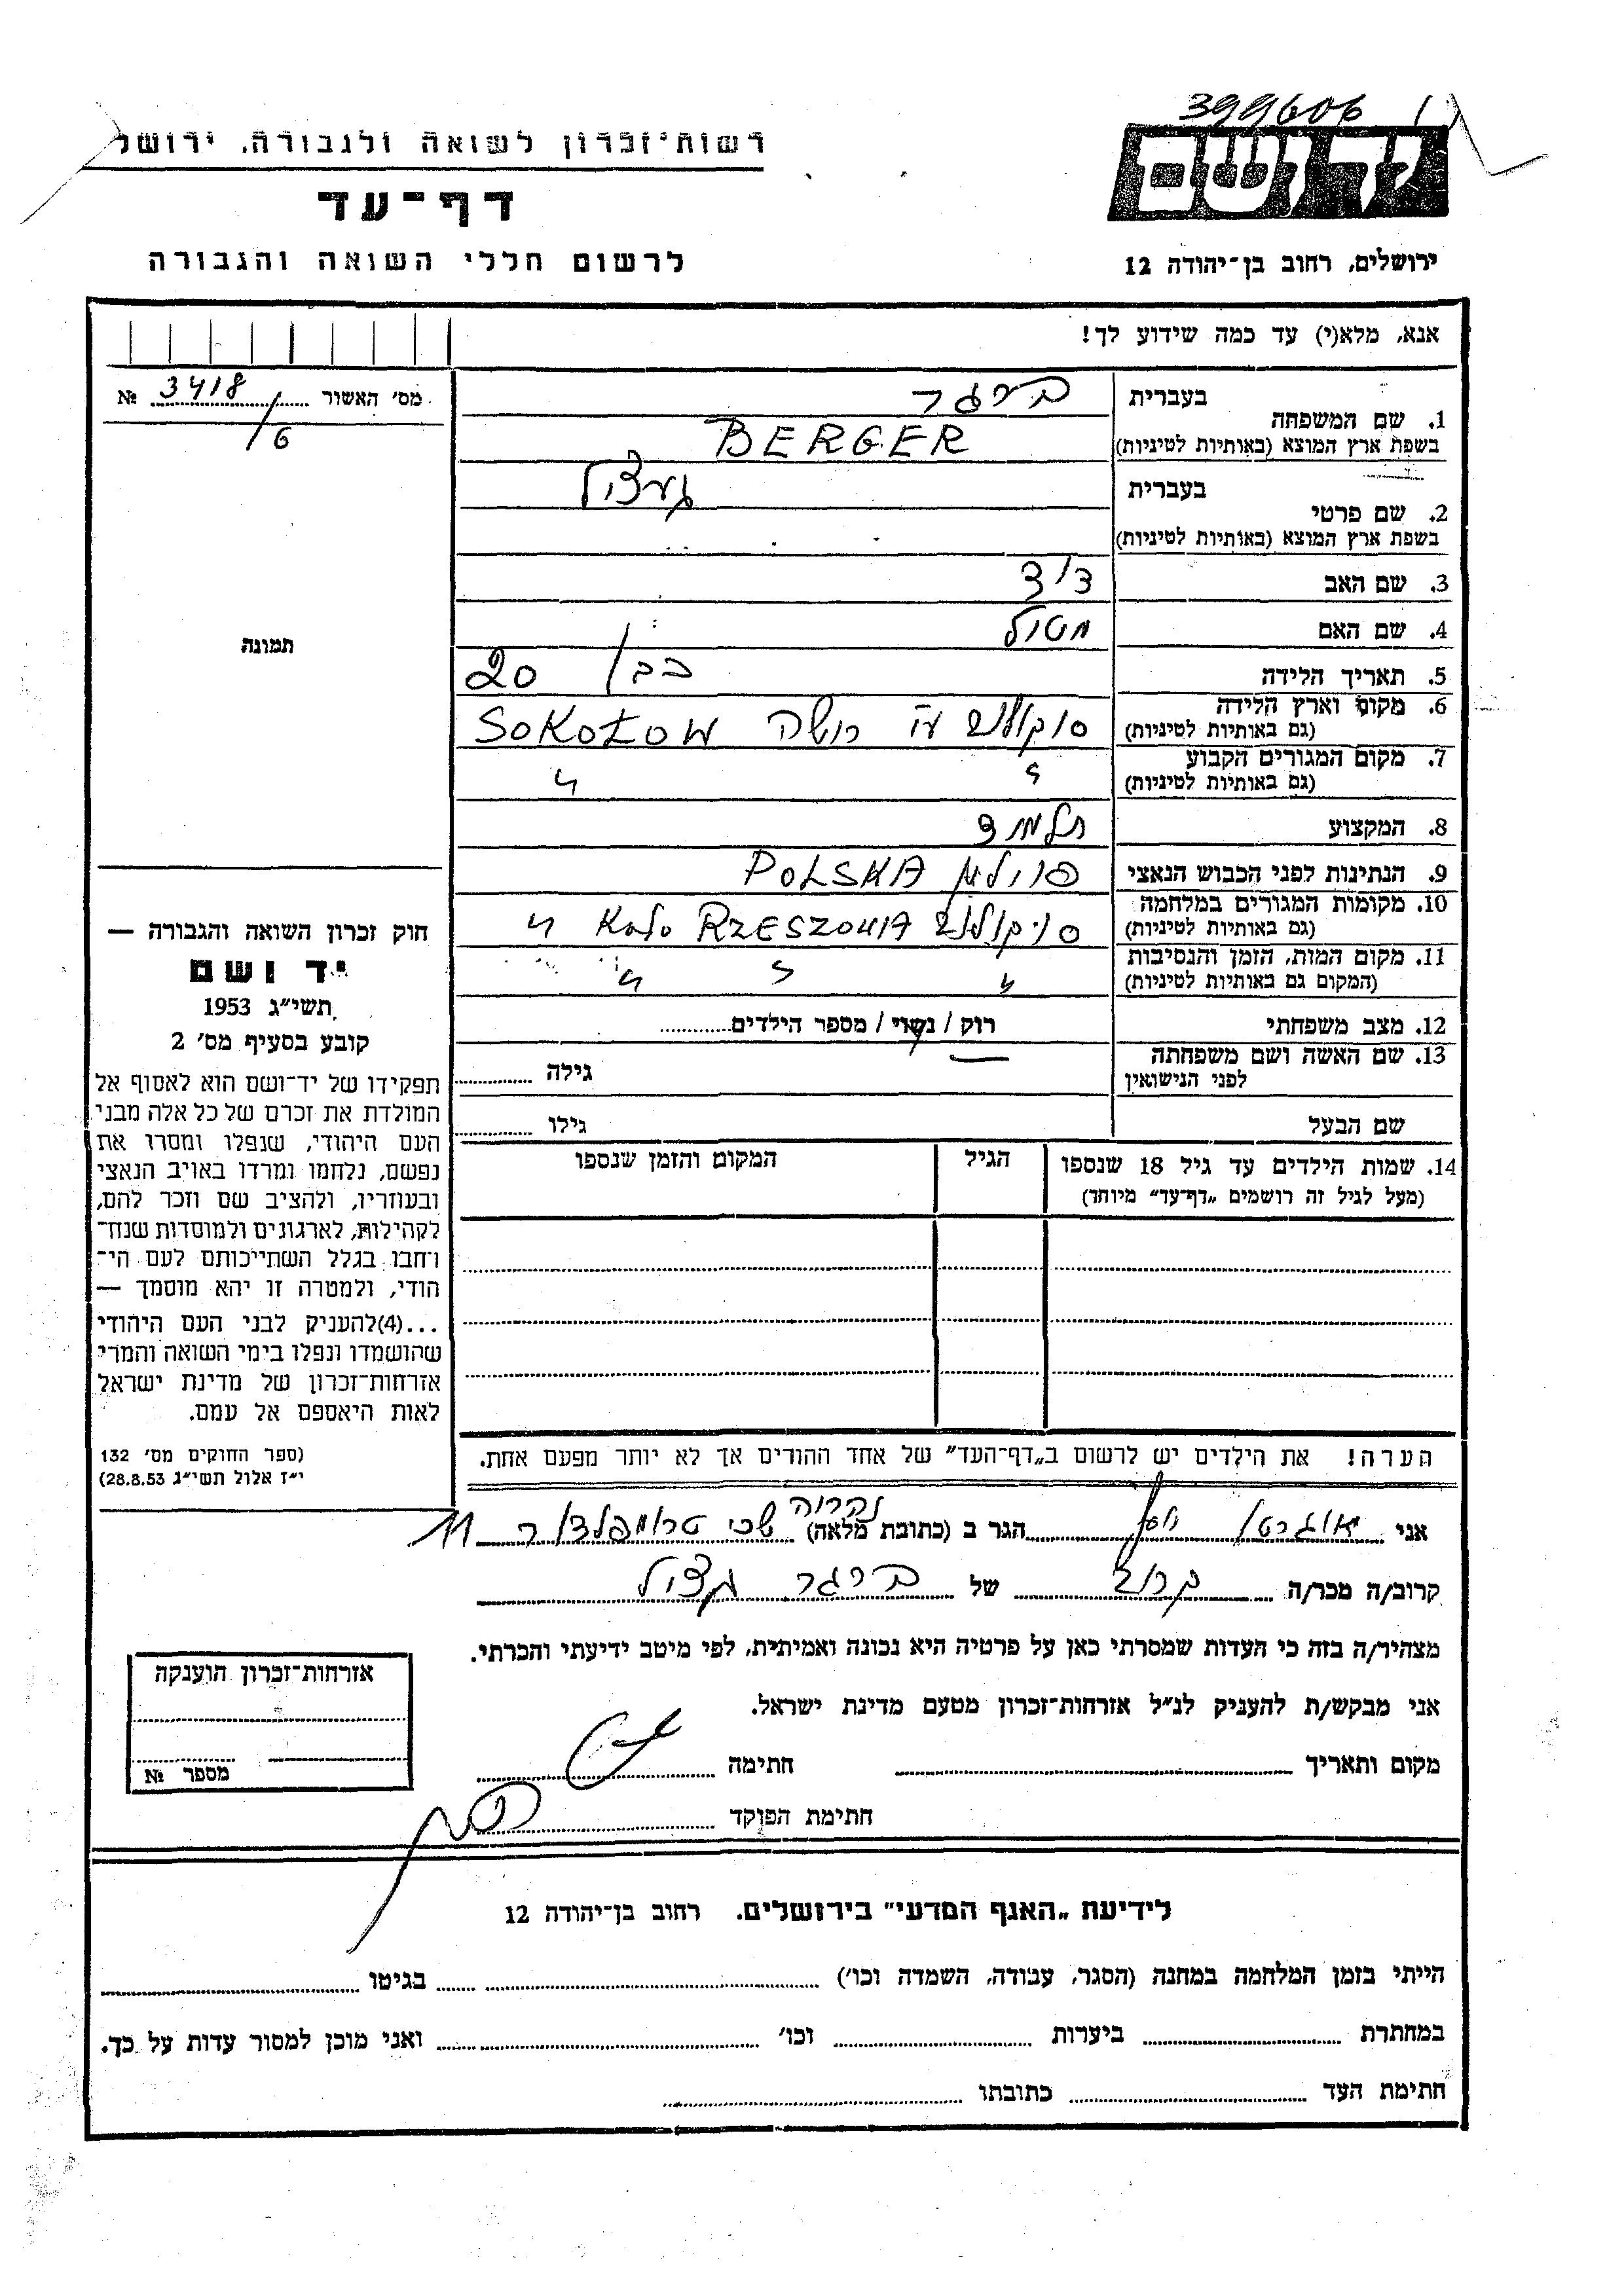 399606
יד ושם
רשות־זכרון לשואה ולגבורה, ירושל
דף־עד
לרשום חללי השואה והגבורה
ירושלים, רחוב בן־יהודה 12
אנא, מלא(י) עד כמה שידוע לך!
מס׳ האשור 3418 №
/6
בעברית ברגר
1. שם המשפחה
בשפת ארץ המוצא (באותיות לטיניות) BERGER
בעברית געציל
2. שם פרטי
בשפת ארץ המוצא (באותיות לטיניות)
3. שם האב דוד
4. שם האם מטיל
5. תאריך הלידה בן / 20
6. מקום וארץ הלידה
(גם באותיות לטיניות) SOKOŁOW
7. מקום המגורים הקבוע
(גם באותיות לטיניות) "
8. המקצוע תלמיד
9. הנתינות לפני הכבוש הנאצי פולין POLSKA
10. מקומות המגורים במלחמה
(גם באותיות לטיניות) KOLO RZESZOWA "
11. מקום המות, הזמן והנסיבות
(המקום גם באותיות לטיניות) " " "
12. מצב משפחתי רוק / נשוי / מספר הילדים
13. שם האשה ושם משפחתה
לפני הנישואין גילה
שם הבעל גילו
14. שמות הילדים עד גיל 18 שנספו הגיל המקום והזמן שנספו
(מעל לגיל זה רושמים „דף־עד" מיוחד)
הערה! את הילדים יש לרשום ב„דף־העד" של אחד ההורים אך לא יותר מפעם אחת.
תמונה
חוק זכרון השואה והגבורה —
יד ושם
תשי״ג 1953
קובע בסעיף מס׳ 2
תפקידו של יד־ושם הוא לאסוף אל
המולדת את זכרם של כל אלה מבני
העם היהודי, שנפלו ומסרו את
נפשם, נלחמו ומרדו באויב הנאצי
ובעוזריו, ולהציב שם וזכר להם,
לקהילות, לארגונים ולמוסדות שנח־
רחבו בגלל השתייכותם לעם הי־
הודי, ולמטרה זו יהא מוסמך —
...(4)להעניק לבני העם היהודי
שהושמדו ונפלו בימי השואה והמרי
אזרחות־זכרון של מדינת ישראל
לאות היאספם אל עמם.
(ספר החוקים מס׳ 132
י״ז אלול תשי״ג 28.8.53)
אני הגר ב (כתובת מלאה) טרומפלדור 11
קרוב/ה מכר/ה קרוב של ברגר געציל
מצהיר/ה בזה כי העדות שמסרתי כאן על פרטיה היא נכונה ואמיתית, לפי מיטב ידיעתי והכרתי.
אני מבקש/ת להעניק לנ״ל אזרחות־זכרון מטעם מדינת ישראל.
מקום ותאריך חתימה
חתימת הפוקד
אזרחות־זכרון הוענקה
מספר №
לידיעת „האגף המדעי" בירושלים. רחוב בן־יהודה 12
הייתי בזמן המלחמה במחנה (הסגר, עבודה, השמדה וכו׳) בגיטו
במחתרת ביערות וכו׳ ואני מוכן למסור עדות על כך.
חתימת העד כתובתו